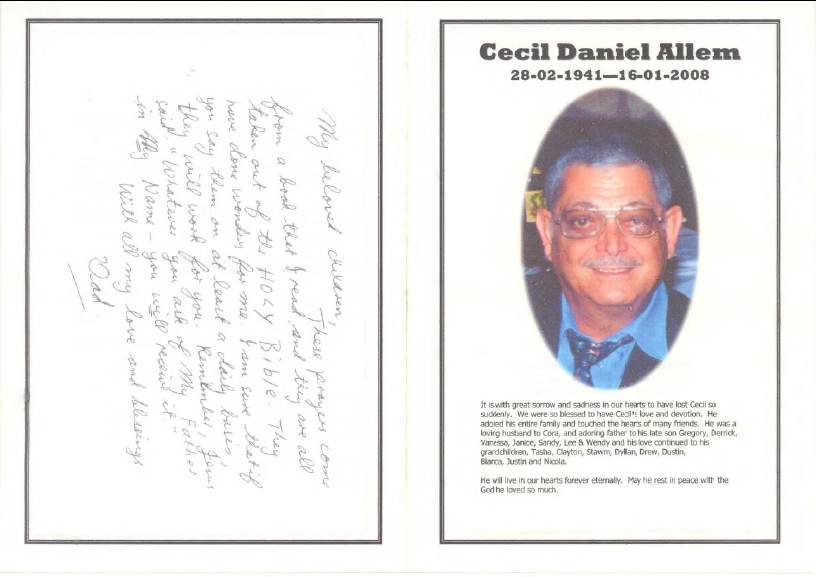 My beloved children,
These prayers come
from a book that I read and they are all
taken out of the HOLY Bible. They
have done wonders for me. I am sure that if
you say them on at least a daily basis,
they will work for you. Remember, Jesus
said: "Whatever you ask of My Father
in My Name - you will receive it."
With all my love and blessings
Dad.
Cecil Daniel Allem
28-02-1941—16-01-2008
It is with great sorrow and sadness in our hearts to have lost Cecil so
suddenly. We were so blessed to have Cecil's love and devotion. He
adored his entire family and touched the hearts of many friends. He was a
loving husband to Cora, and adoring father to his late son Gregory, Derrick,
Vanessa, Janice, Sandy, Lee & Wendy and his love continued to his
grandchildren, Tasha, Clayton, Stawm, Dyllan, Drew, Dustin,
Bianca, Justin and Nicola.
He will live in our hearts forever eternally. May he rest in peace with the
God he loved so much.